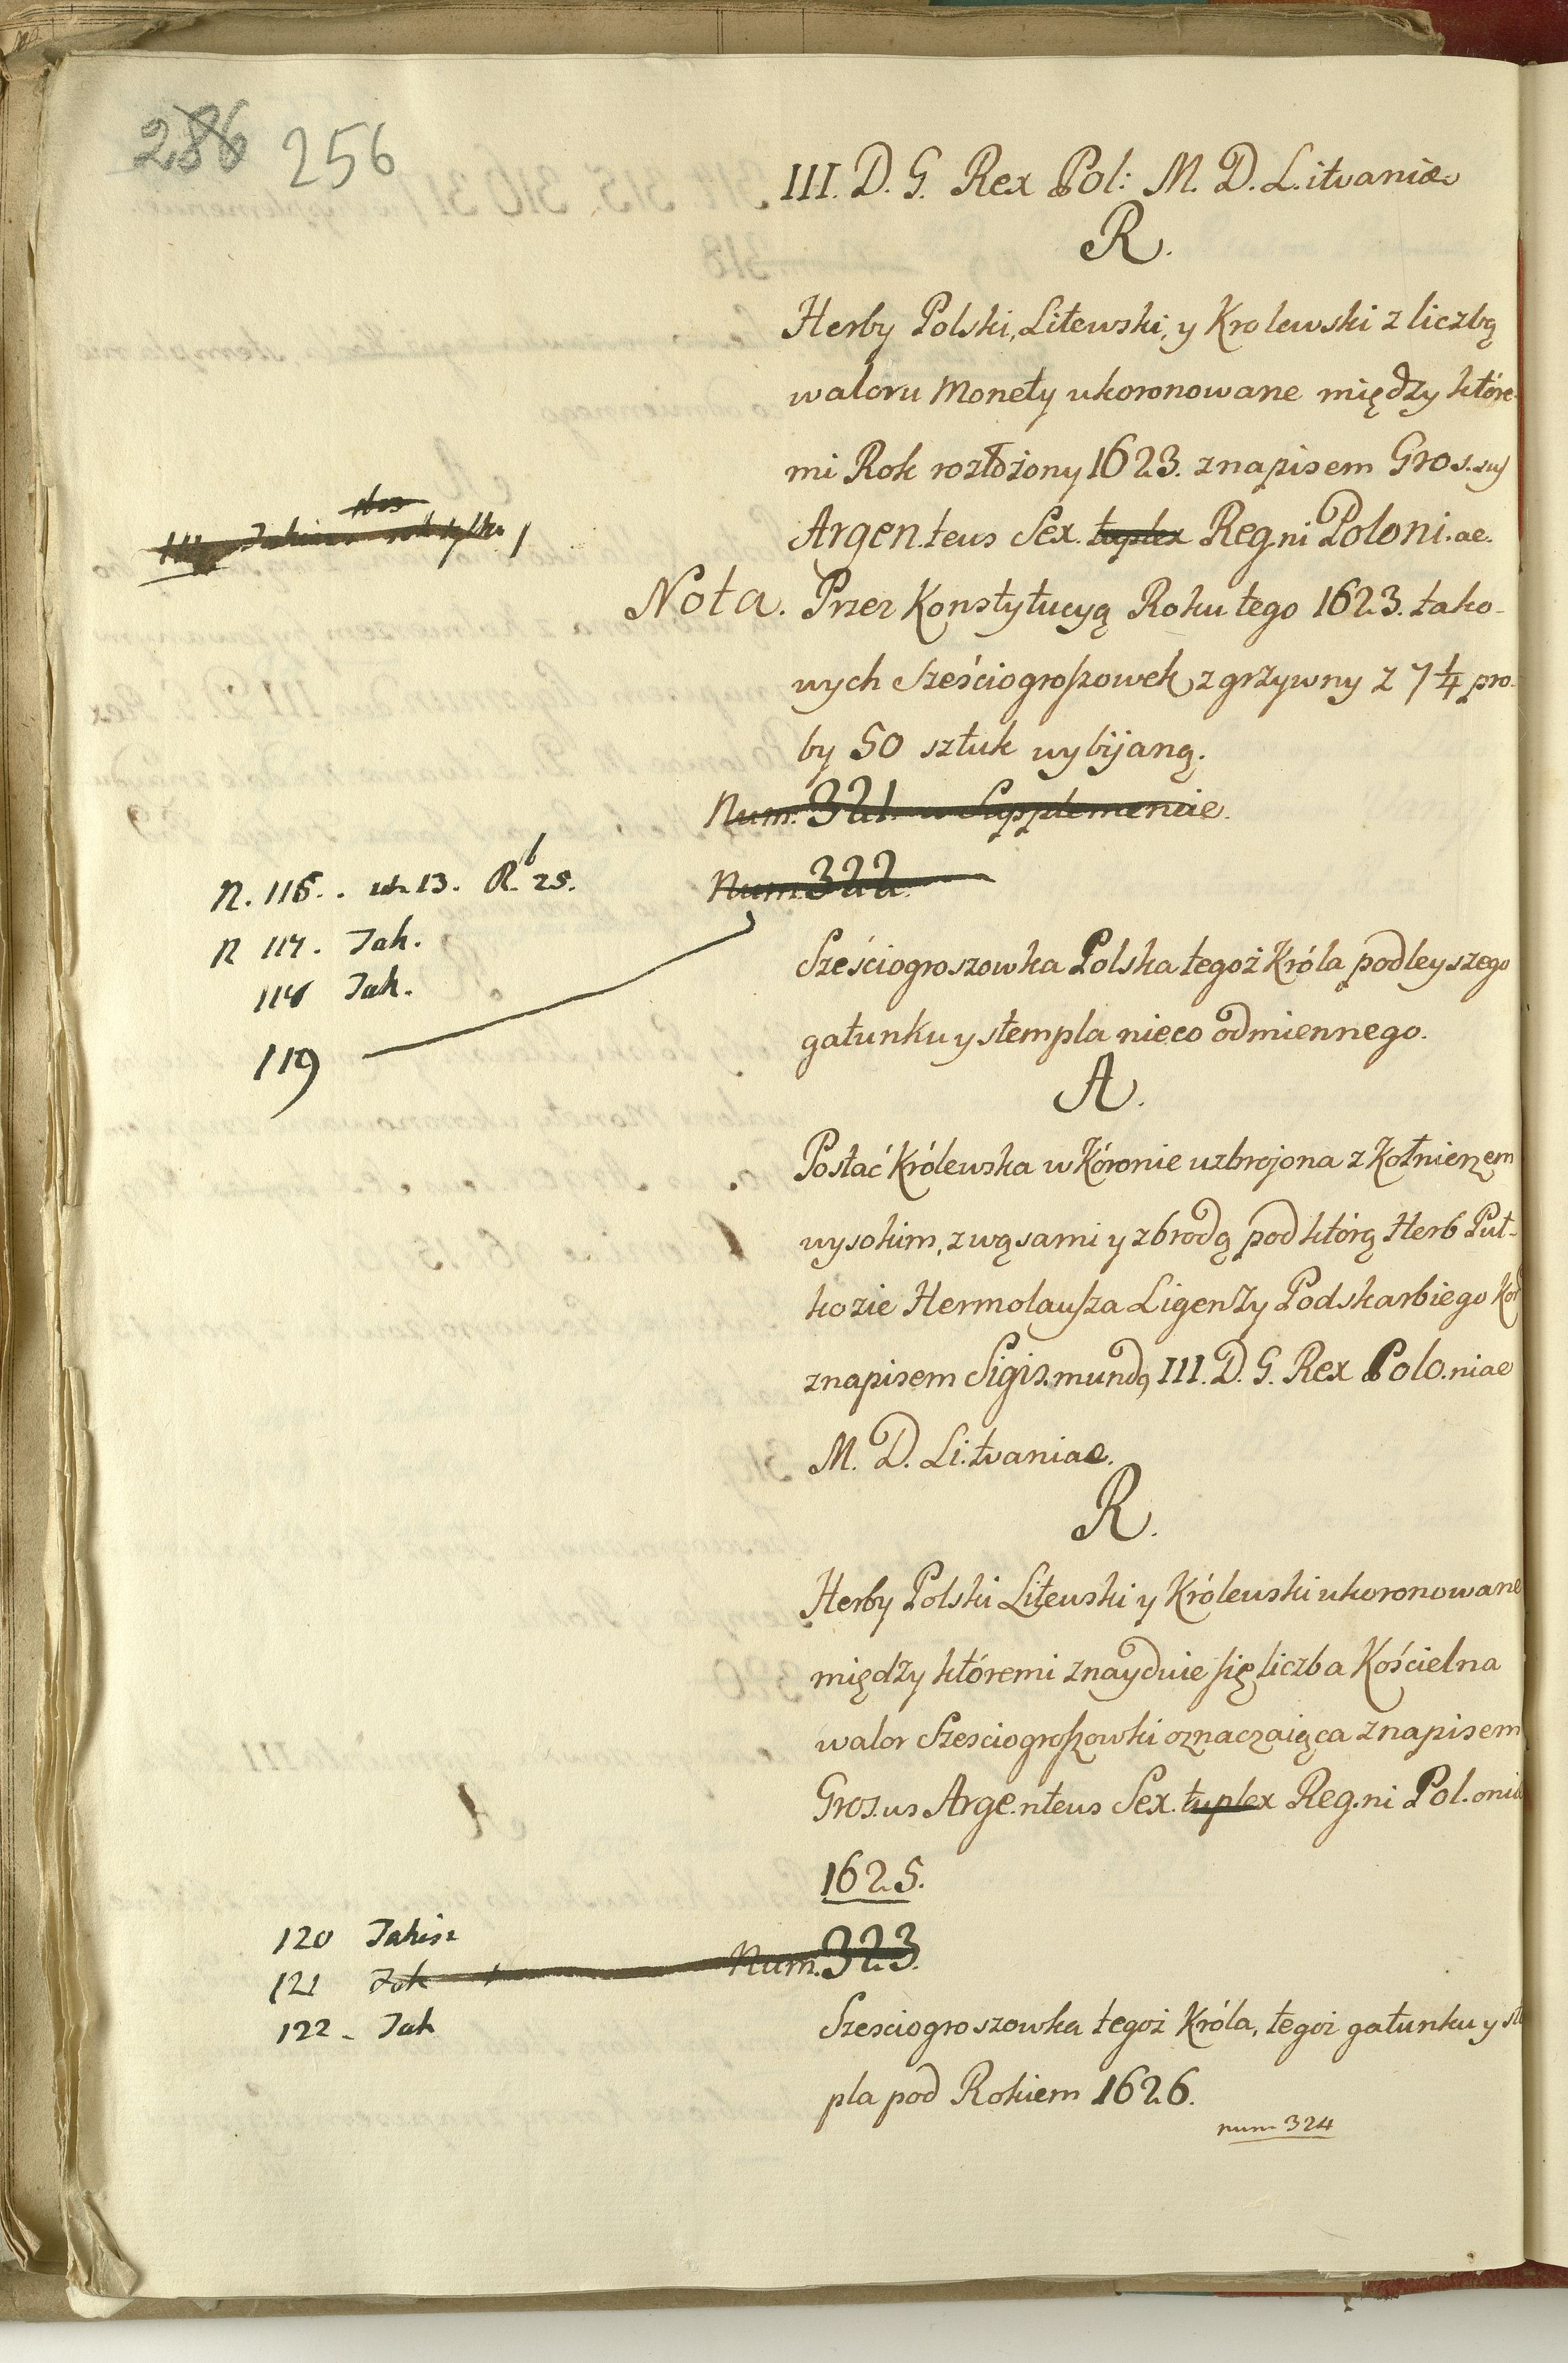 286 256
III. D. G. Rex Pol: M. D. L.itvaniæ
R.
Herby Polski, Litewski, y Krolewski z liczbą
waloru Monety ukoronowane między które-
mi Rok rozłożony 1623. z napisem Gros.sus
Argen.teus Sex. tuplex Reg.ni Poloni.ae.
Nota. Przez Konstytucyą Roku tego 1623. tako-
wych Sześciogroszowek z grzywny z 7 1/4 pro-
by 50 sztuk wybijaną.
Num. 321. w Supplemencie.
N. 116. . 13. R. 25.
Num. 322.
N 117. Jak.
118 Jak.
119
Sześciogroszowka Polska tegoż Króla podleyszego
gatunku y stempla nieco odmiennego.
A.
Postać Królewska w Koronie uzbrojona z Kołnierzem
wysokim, z wąsami y z brodą pod którą Herb Puł-
kozie Hermolausza Ligenzy Podskarbiego Kor
z napisem Sigis.mundq III. D. G. Rex Polo.niae
M. D. Li.tvaniae.
R.
Herby Polski Litewski y Królewski ukoronowane
między któremi znayduie się liczba Kościelna
walor Szesciogroszowki oznaczaiąca z napisem
Gros.us Arge.nteus Sex. tuplex Reg.ni Pol.oniae
1625.
120 Jakisz
121 Jak Num. 323.
122 - Jak
Szesciogroszowka tegoż Króla, tegoż gatunku y st
pla pod Rokiem 1626.
num 324